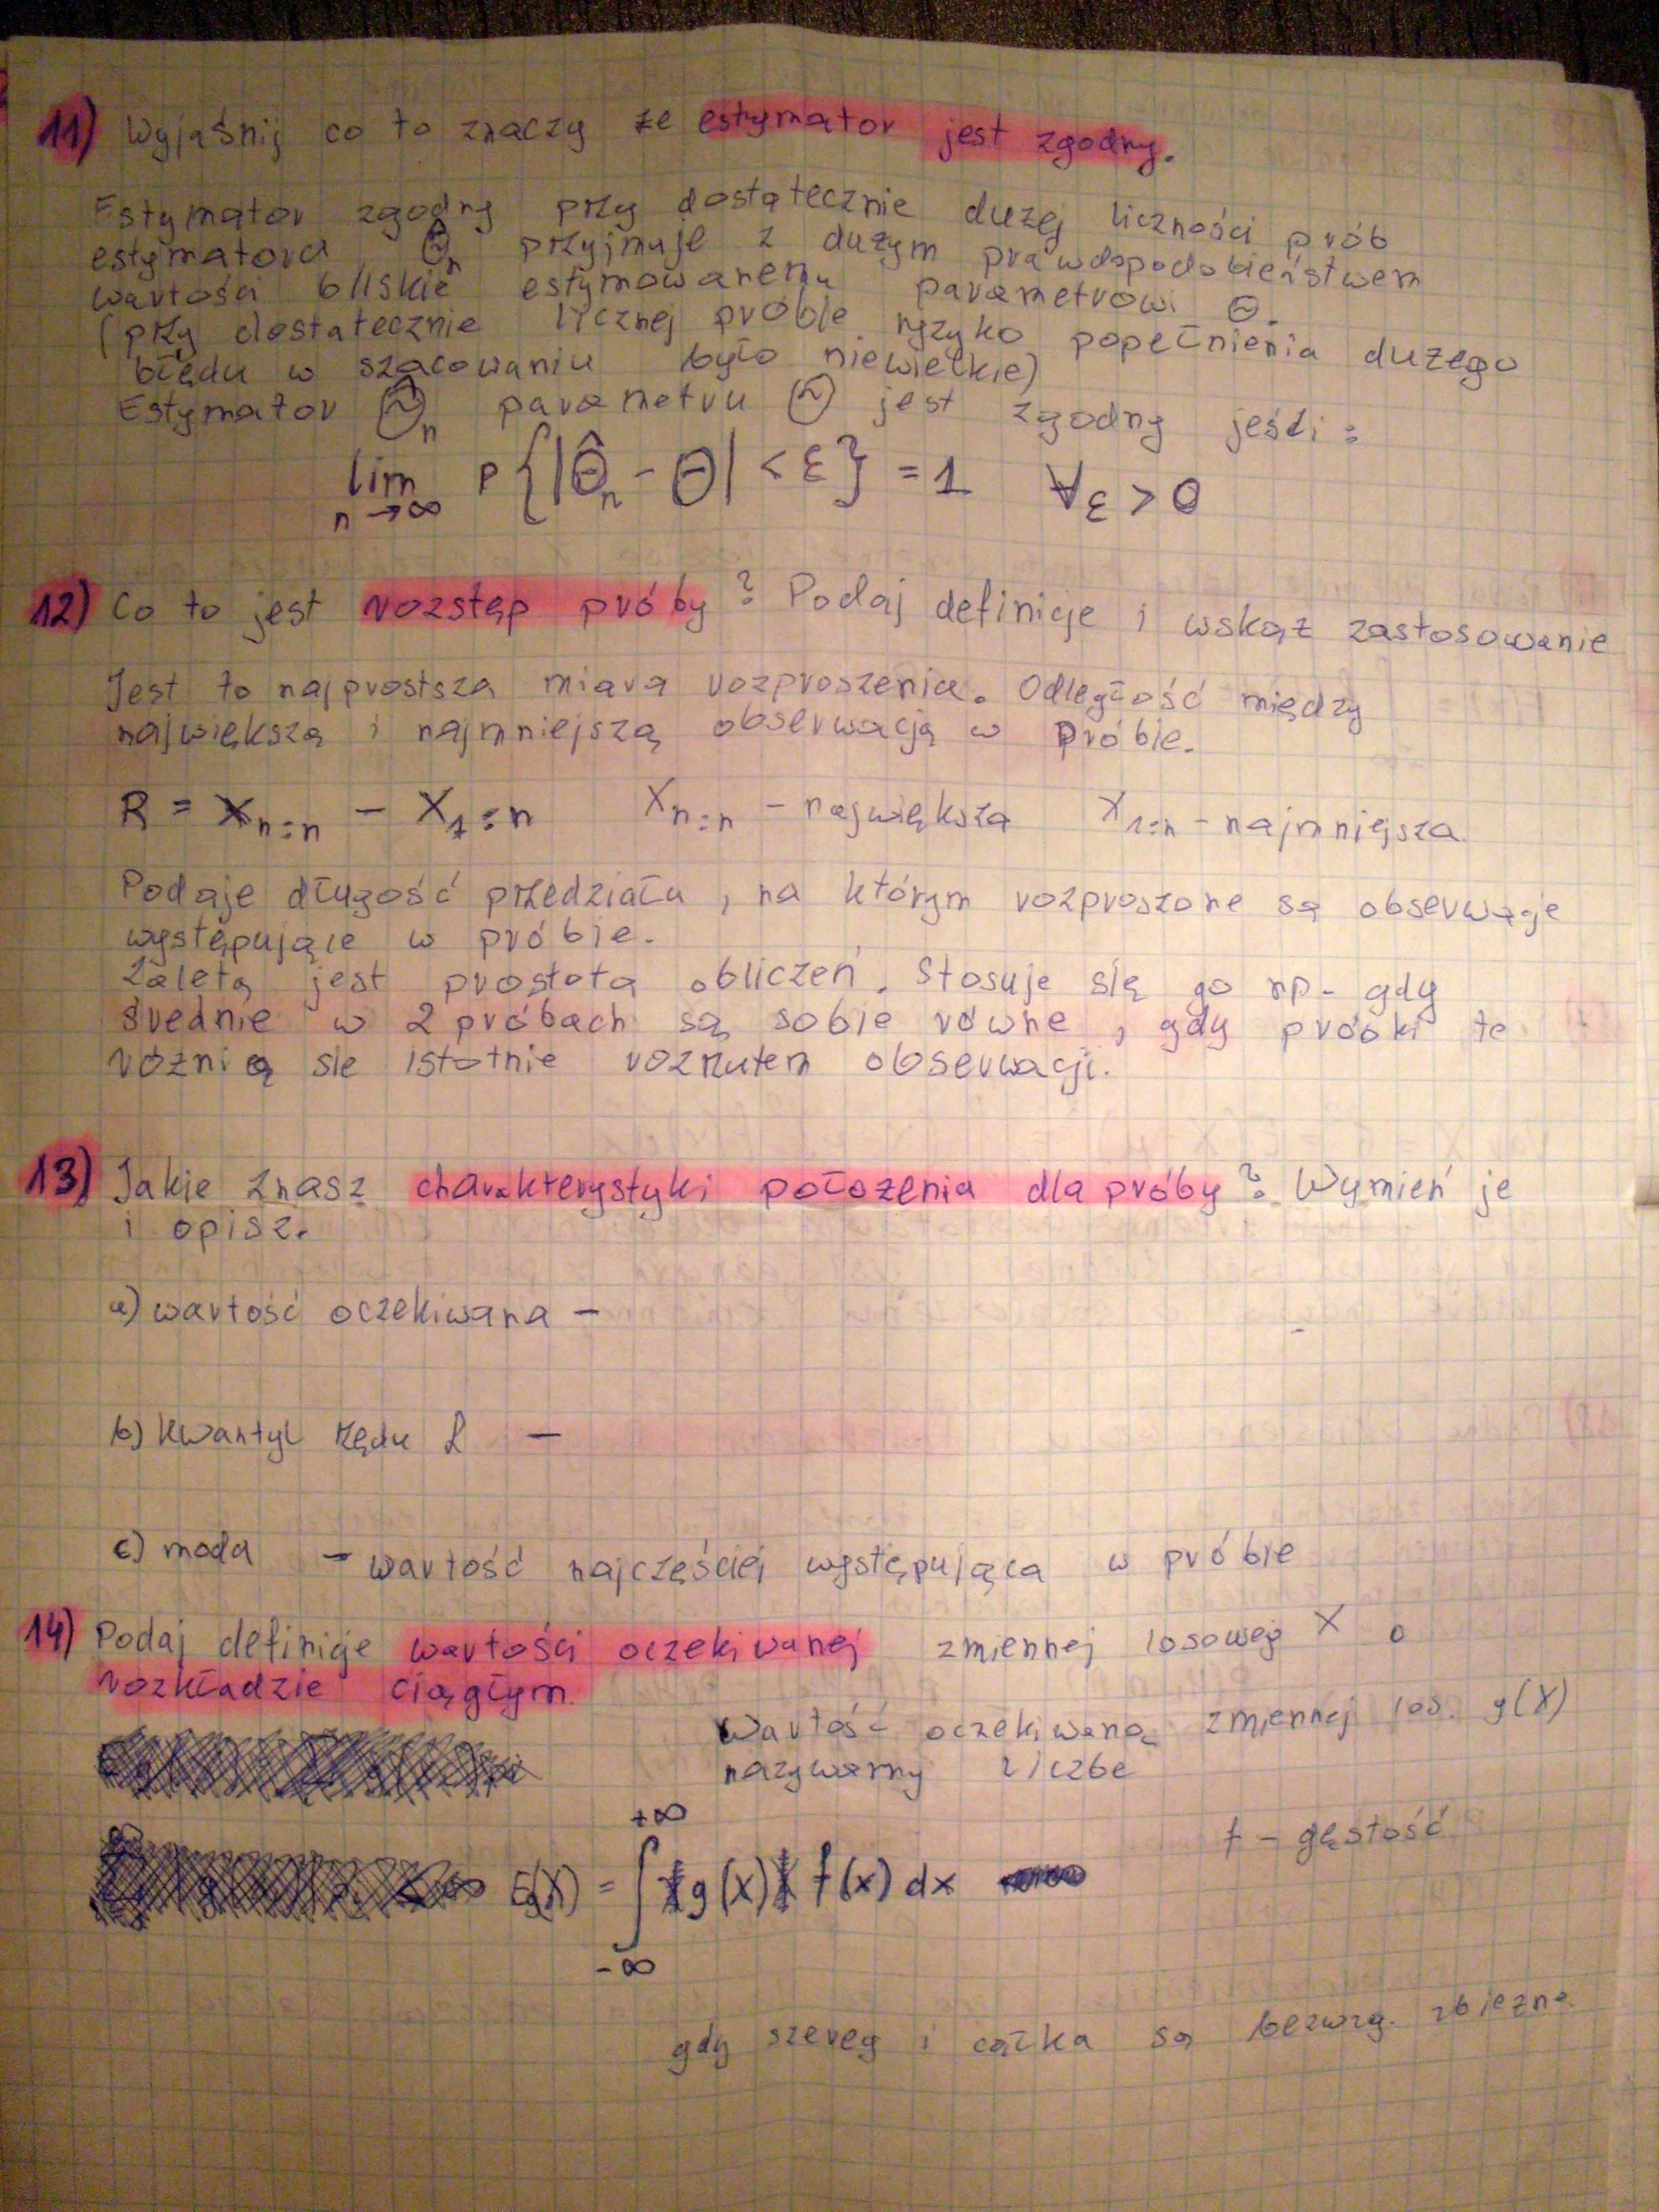 11) Wyjaśnij co to znaczy że estymator jest zgodny.
Estymator zgodny przy dostatecznie dużej liczności prób
estymatora Θ̂n przyjmuje z dużym prawdopodobieństwem
wartości bliskie estymowanemu parametrowi Θ.
(przy dostatecznie licznej próbie ryzyko popełnienia dużego
błędu w szacowaniu było niewielkie)
Estymator Θ̂n parametru Θ jest zgodny jeśli:
lim n→∞ P{|Θ̂n - Θ| < ε} = 1 ∀ε > 0
12) Co to jest rozstęp próby? Podaj definicje i wskaż zastosowanie
Jest to najprostsza miara rozproszenia. Odległość między
największą i najmniejszą obserwacją w próbie.
R = Xn:n - X1:n Xn:n - największa X1:n - najmniejsza
Podaje długość przedziału, na którym rozproszone są obserwacje
występujące w próbie.
Zaletą jest prostota obliczeń. Stosuje się go np. gdy
średnie w 2 próbach są sobie równe, gdy próbki te
różnią sie istotnie rozrzutem obserwacji.
13) Jakie znasz charakterystyki położenia dla próby? Wymień je
i opisz.
a) wartość oczekiwana -
b) kwantyl rzędu L -
c) moda - wartość najczęściej występująca w próbie
14) Podaj definicje wartości oczekiwanej zmiennej losowej X o
rozkładzie ciągłym.
Wartością oczekiwaną zmiennej los. g(X)
nazywamy liczbe
f - gęstość
Eg(X) = ∫ -∞ +∞ g(x) f(x) dx
gdy szereg i całka są bezwzg. zbieżne.